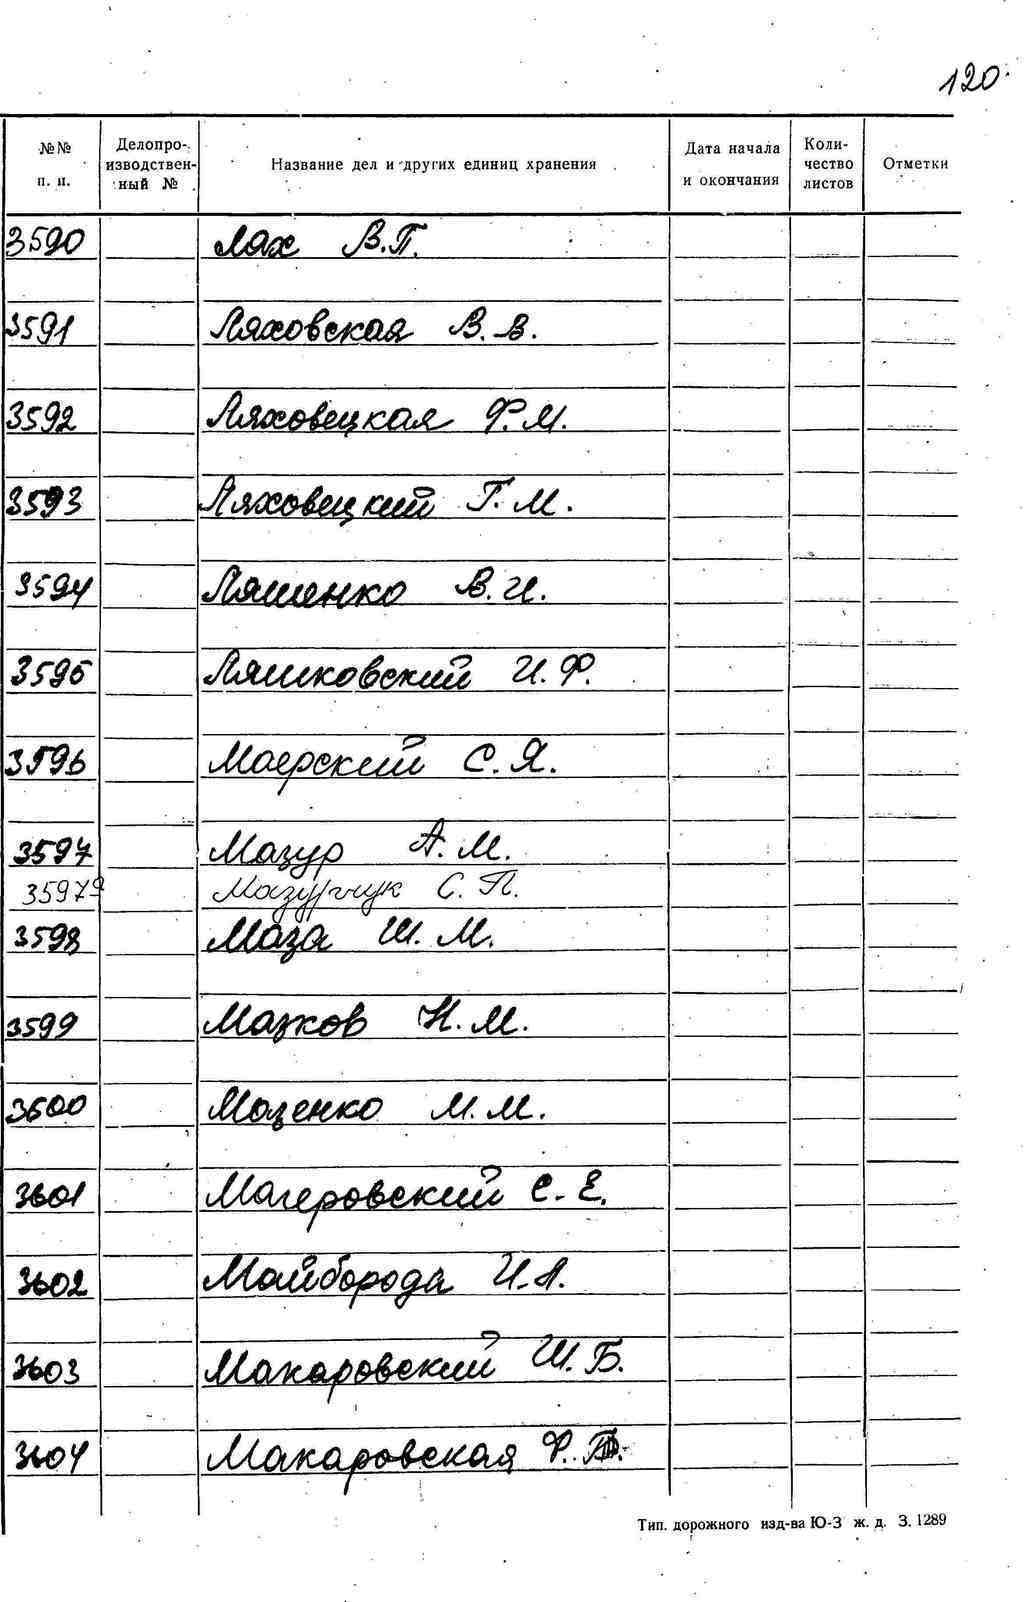 120
№№ п. п. Делопроизводственный № Название дел и других единиц хранения Дата начала и окончания Количество листов Отметки
3590 Лях В.П.
3591 Ляховская В. В.
3592 Ляховецкая Ф. М.
3593 Ляховецкий Г. М.
3594 Ляшенко В. И.
3595 Ляшковский И. Ф.
3596 Маерский С. Я.
3597 Мазур А. М.
3597а Мазурчук С. П.
3598 Маза Ш. М.
3599 Мазков Н. М.
3600 Мазенко М. М.
3601 Магеровский С. Е.
3602 Майборода И. А.
3603 Макаровский Ш. Б.
3604 Макаровская Ф.
Тип. дорожного изд-ва Ю-З ж. д. З. 1289